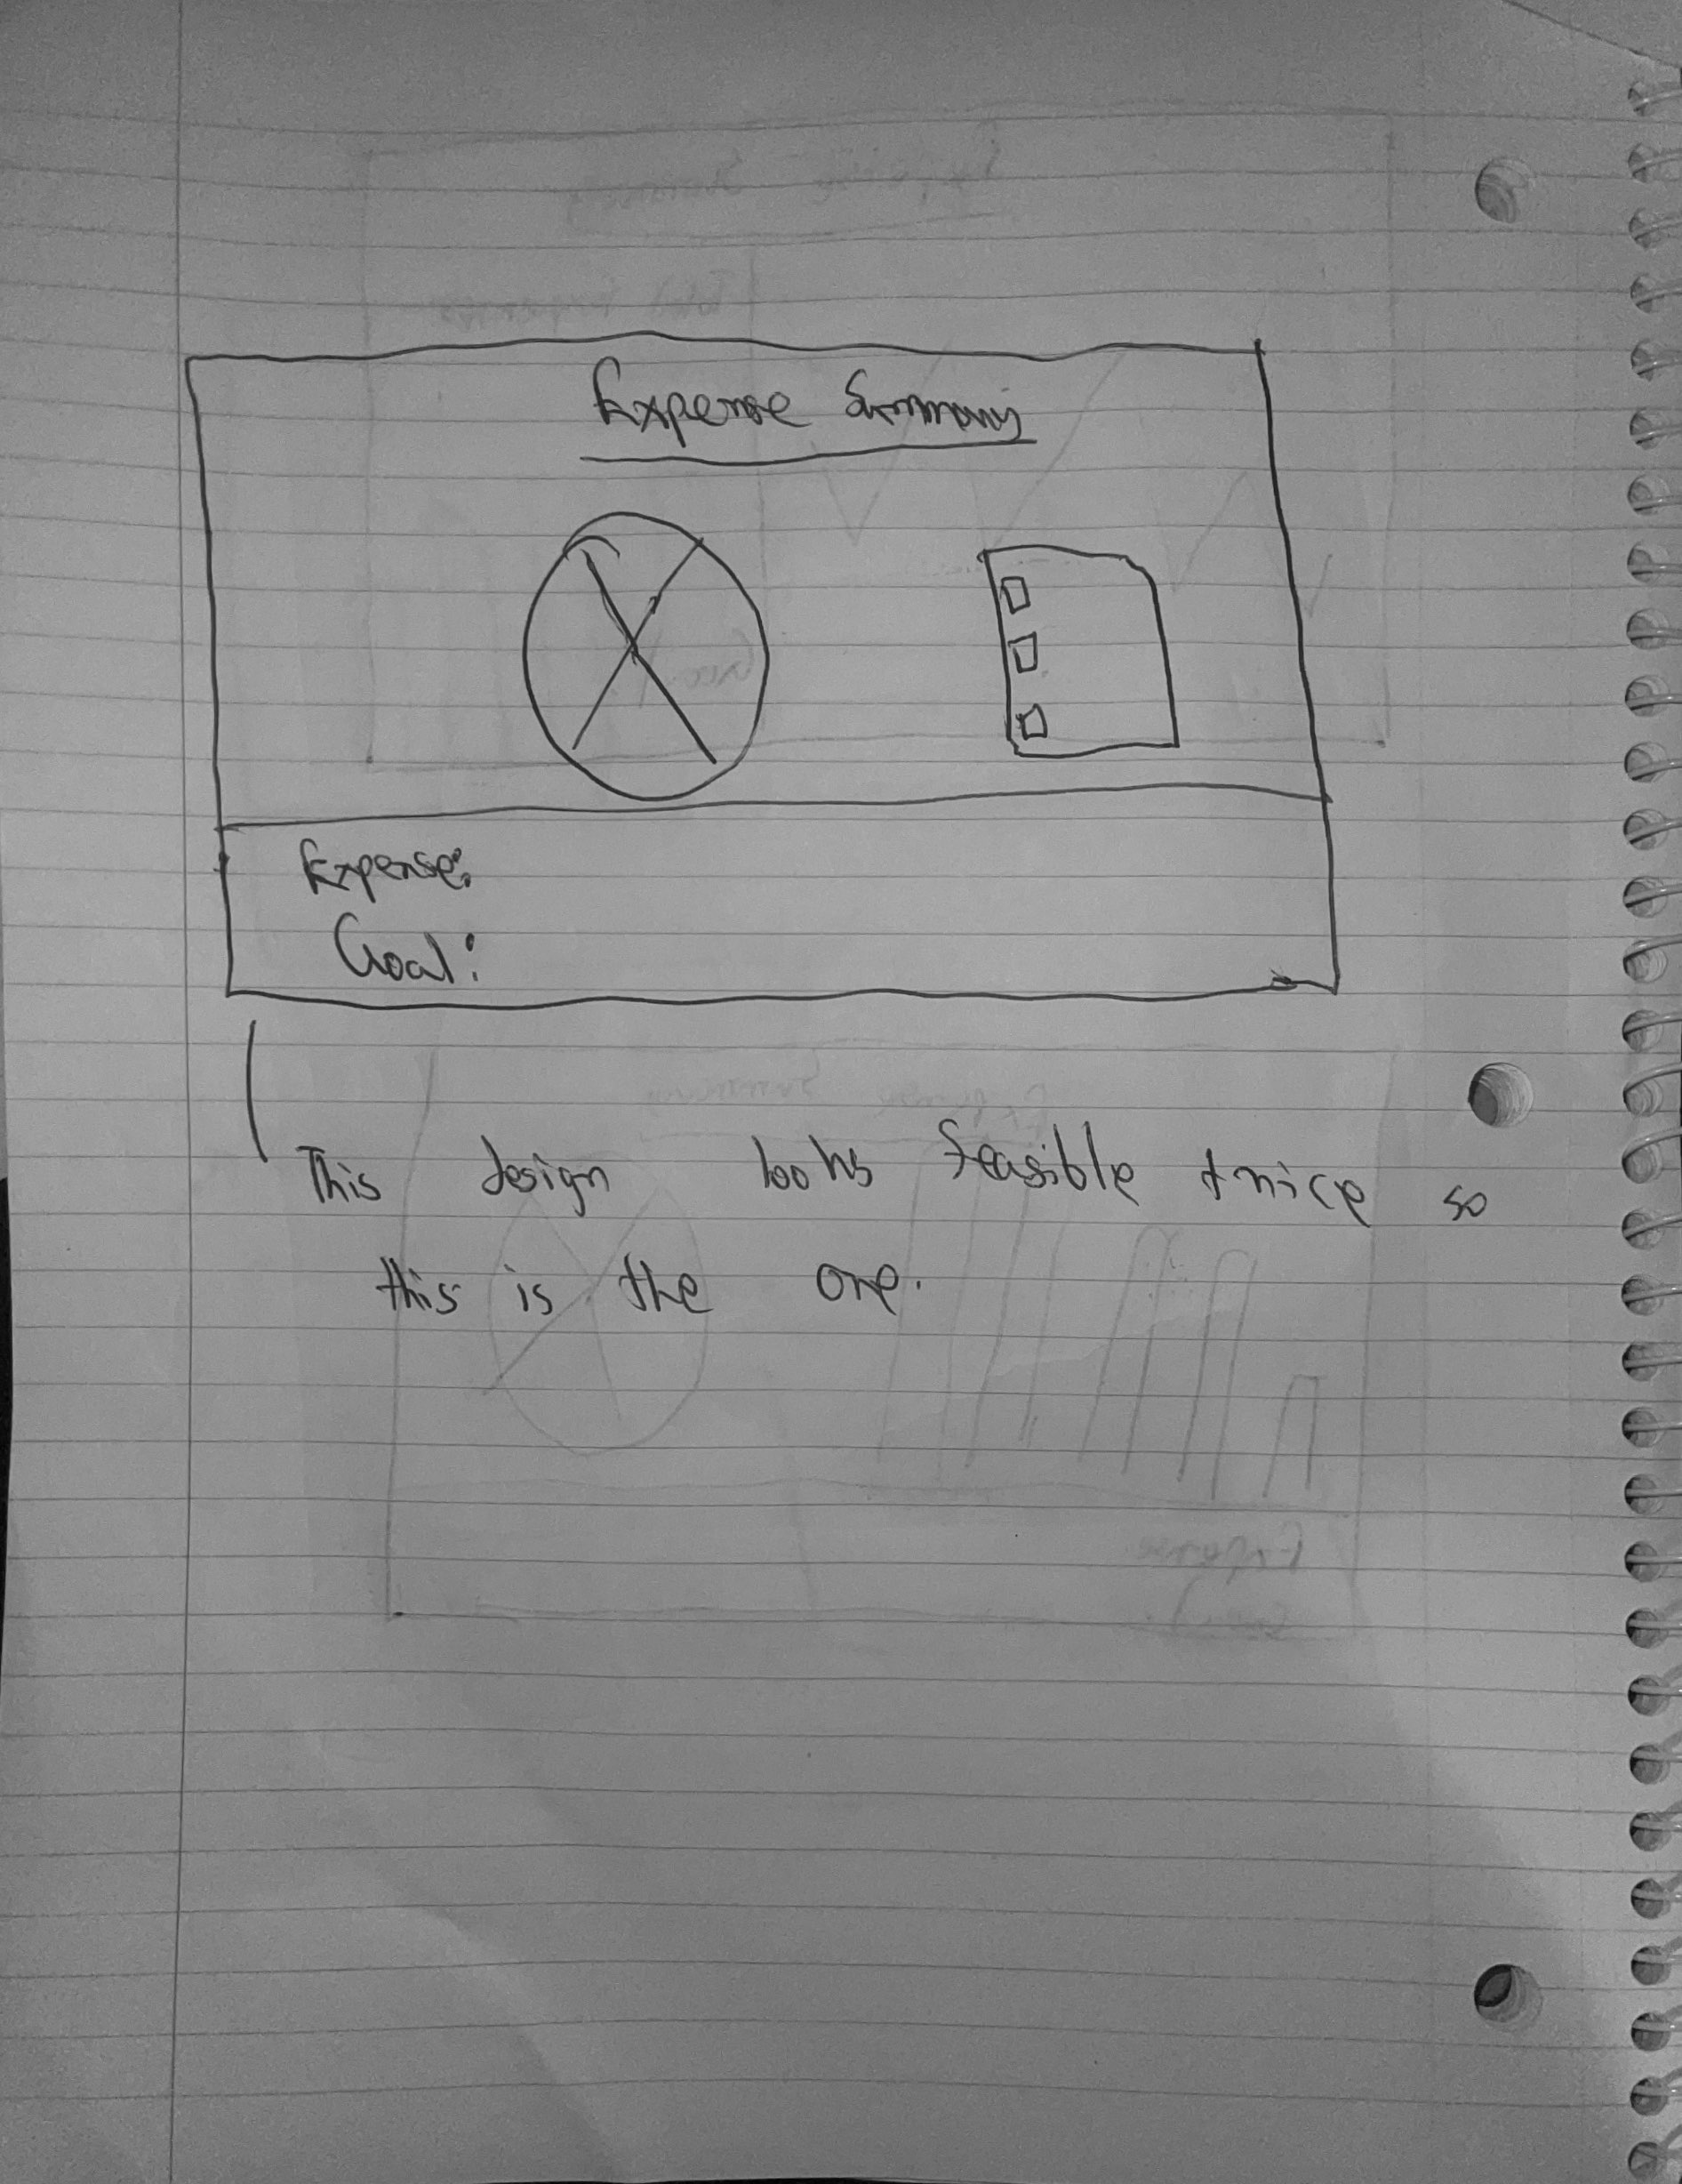 Expense Summary
Expense:
Goal:
This design looks feasible + nice so
this is the one.